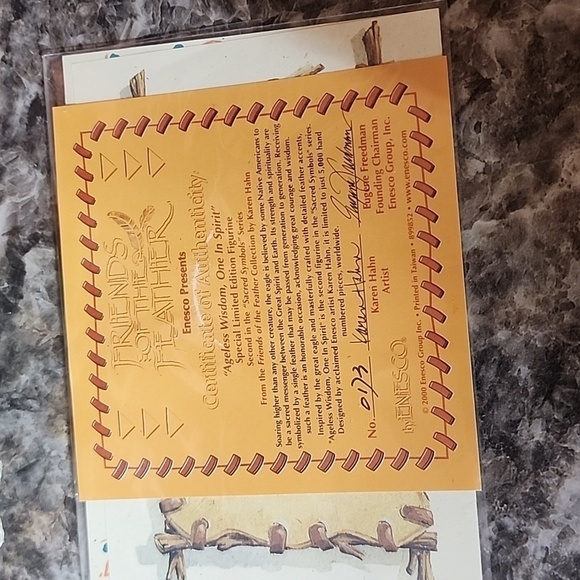 FRIENDS
OF THE
FEATHER
Enesco Presents
Certificate of Authenticity
"Ageless Wisdom, One In Spirit"
Special Limited Edition Figurine
Second in the "Sacred Symbols" Series
From the Friends of the Feather Collection by Karen Hahn
Soaring higher than any other creature, the eagle is believed by some Native Americans to
be a sacred messenger between the Great Spirit and Earth. Its strength and spirituality are
symbolized by a single feather that may be passed from generation to generation. Receiving
such a feather is an honorable occasion, acknowledging great courage and wisdom.
Inspired by the great eagle and masterfully crafted with detailed feather accents,
"Ageless Wisdom, One In Spirit" is the second figurine in the "Sacred Symbols" series.
Designed by acclaimed Enesco artist Karen Hahn, it is limited to just 5,000 hand
numbered pieces, worldwide.
No. 0173
Karen Hahn
Karen Hahn
Artist
Eugene Freedman
Eugene Freedman
Founding Chairman
Enesco Group, Inc.
by ENESCO
© 2000 Enesco Group Inc. • Printed in Taiwan • 899852 • www.enesco.com